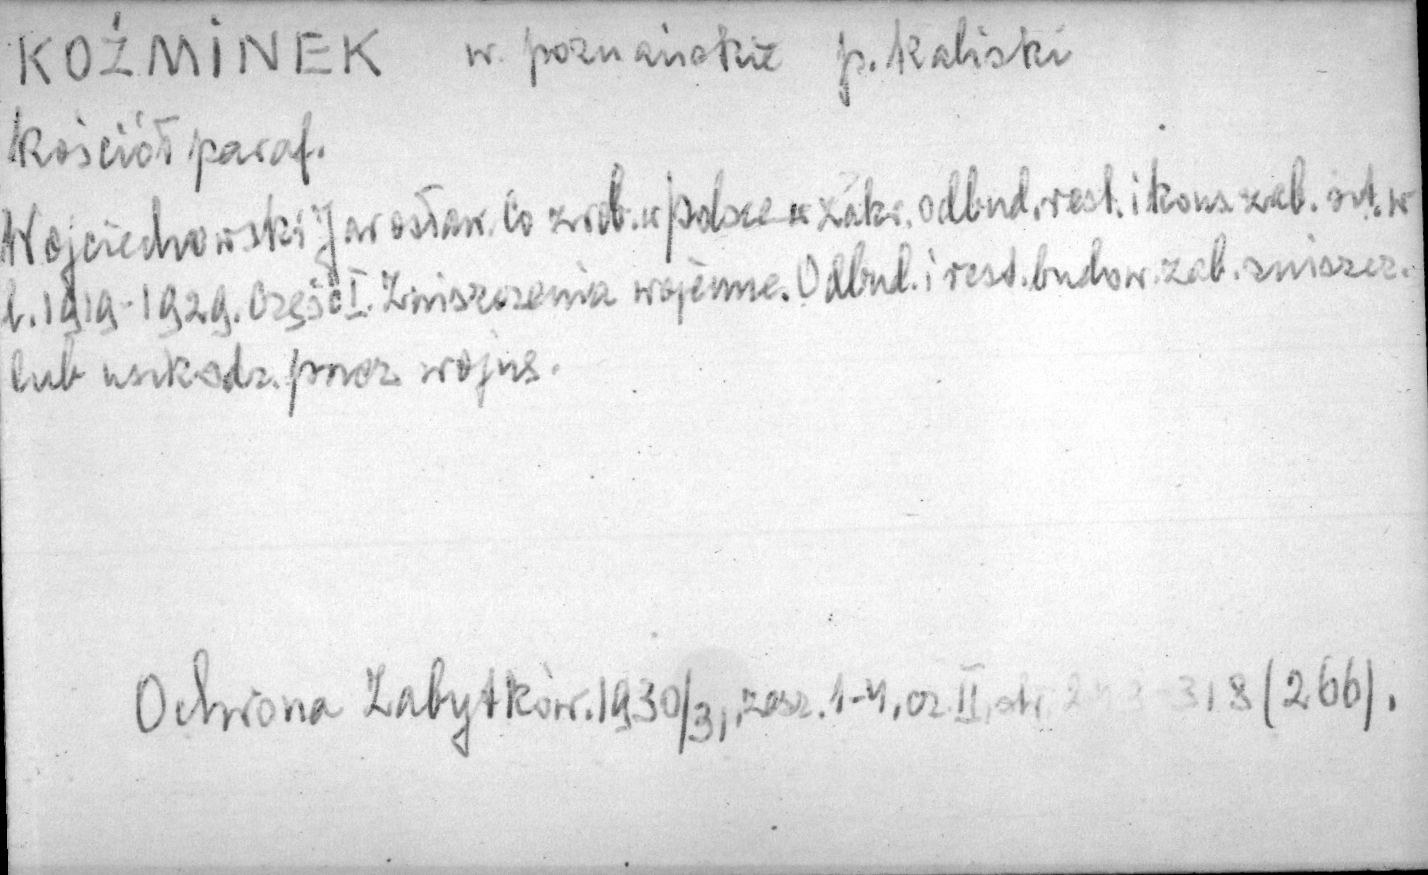 KOŹMINEK w. poznańskie p. Kaliski
Kościół paraf.
Wojciechowski Jarosław. Co zrob. w Polsce w zakr. odbud. rest. i kons. zab. szt. w
l. 1919-1929. Część I. Zniszczenia wojenne. Odbud. i rest. budow. zab. zniszcz.
lub uszkodz. przez wojnę.
Ochrona Zabytków. 1930/3, zesz. 1-4, cz. II, str. 318 (266).